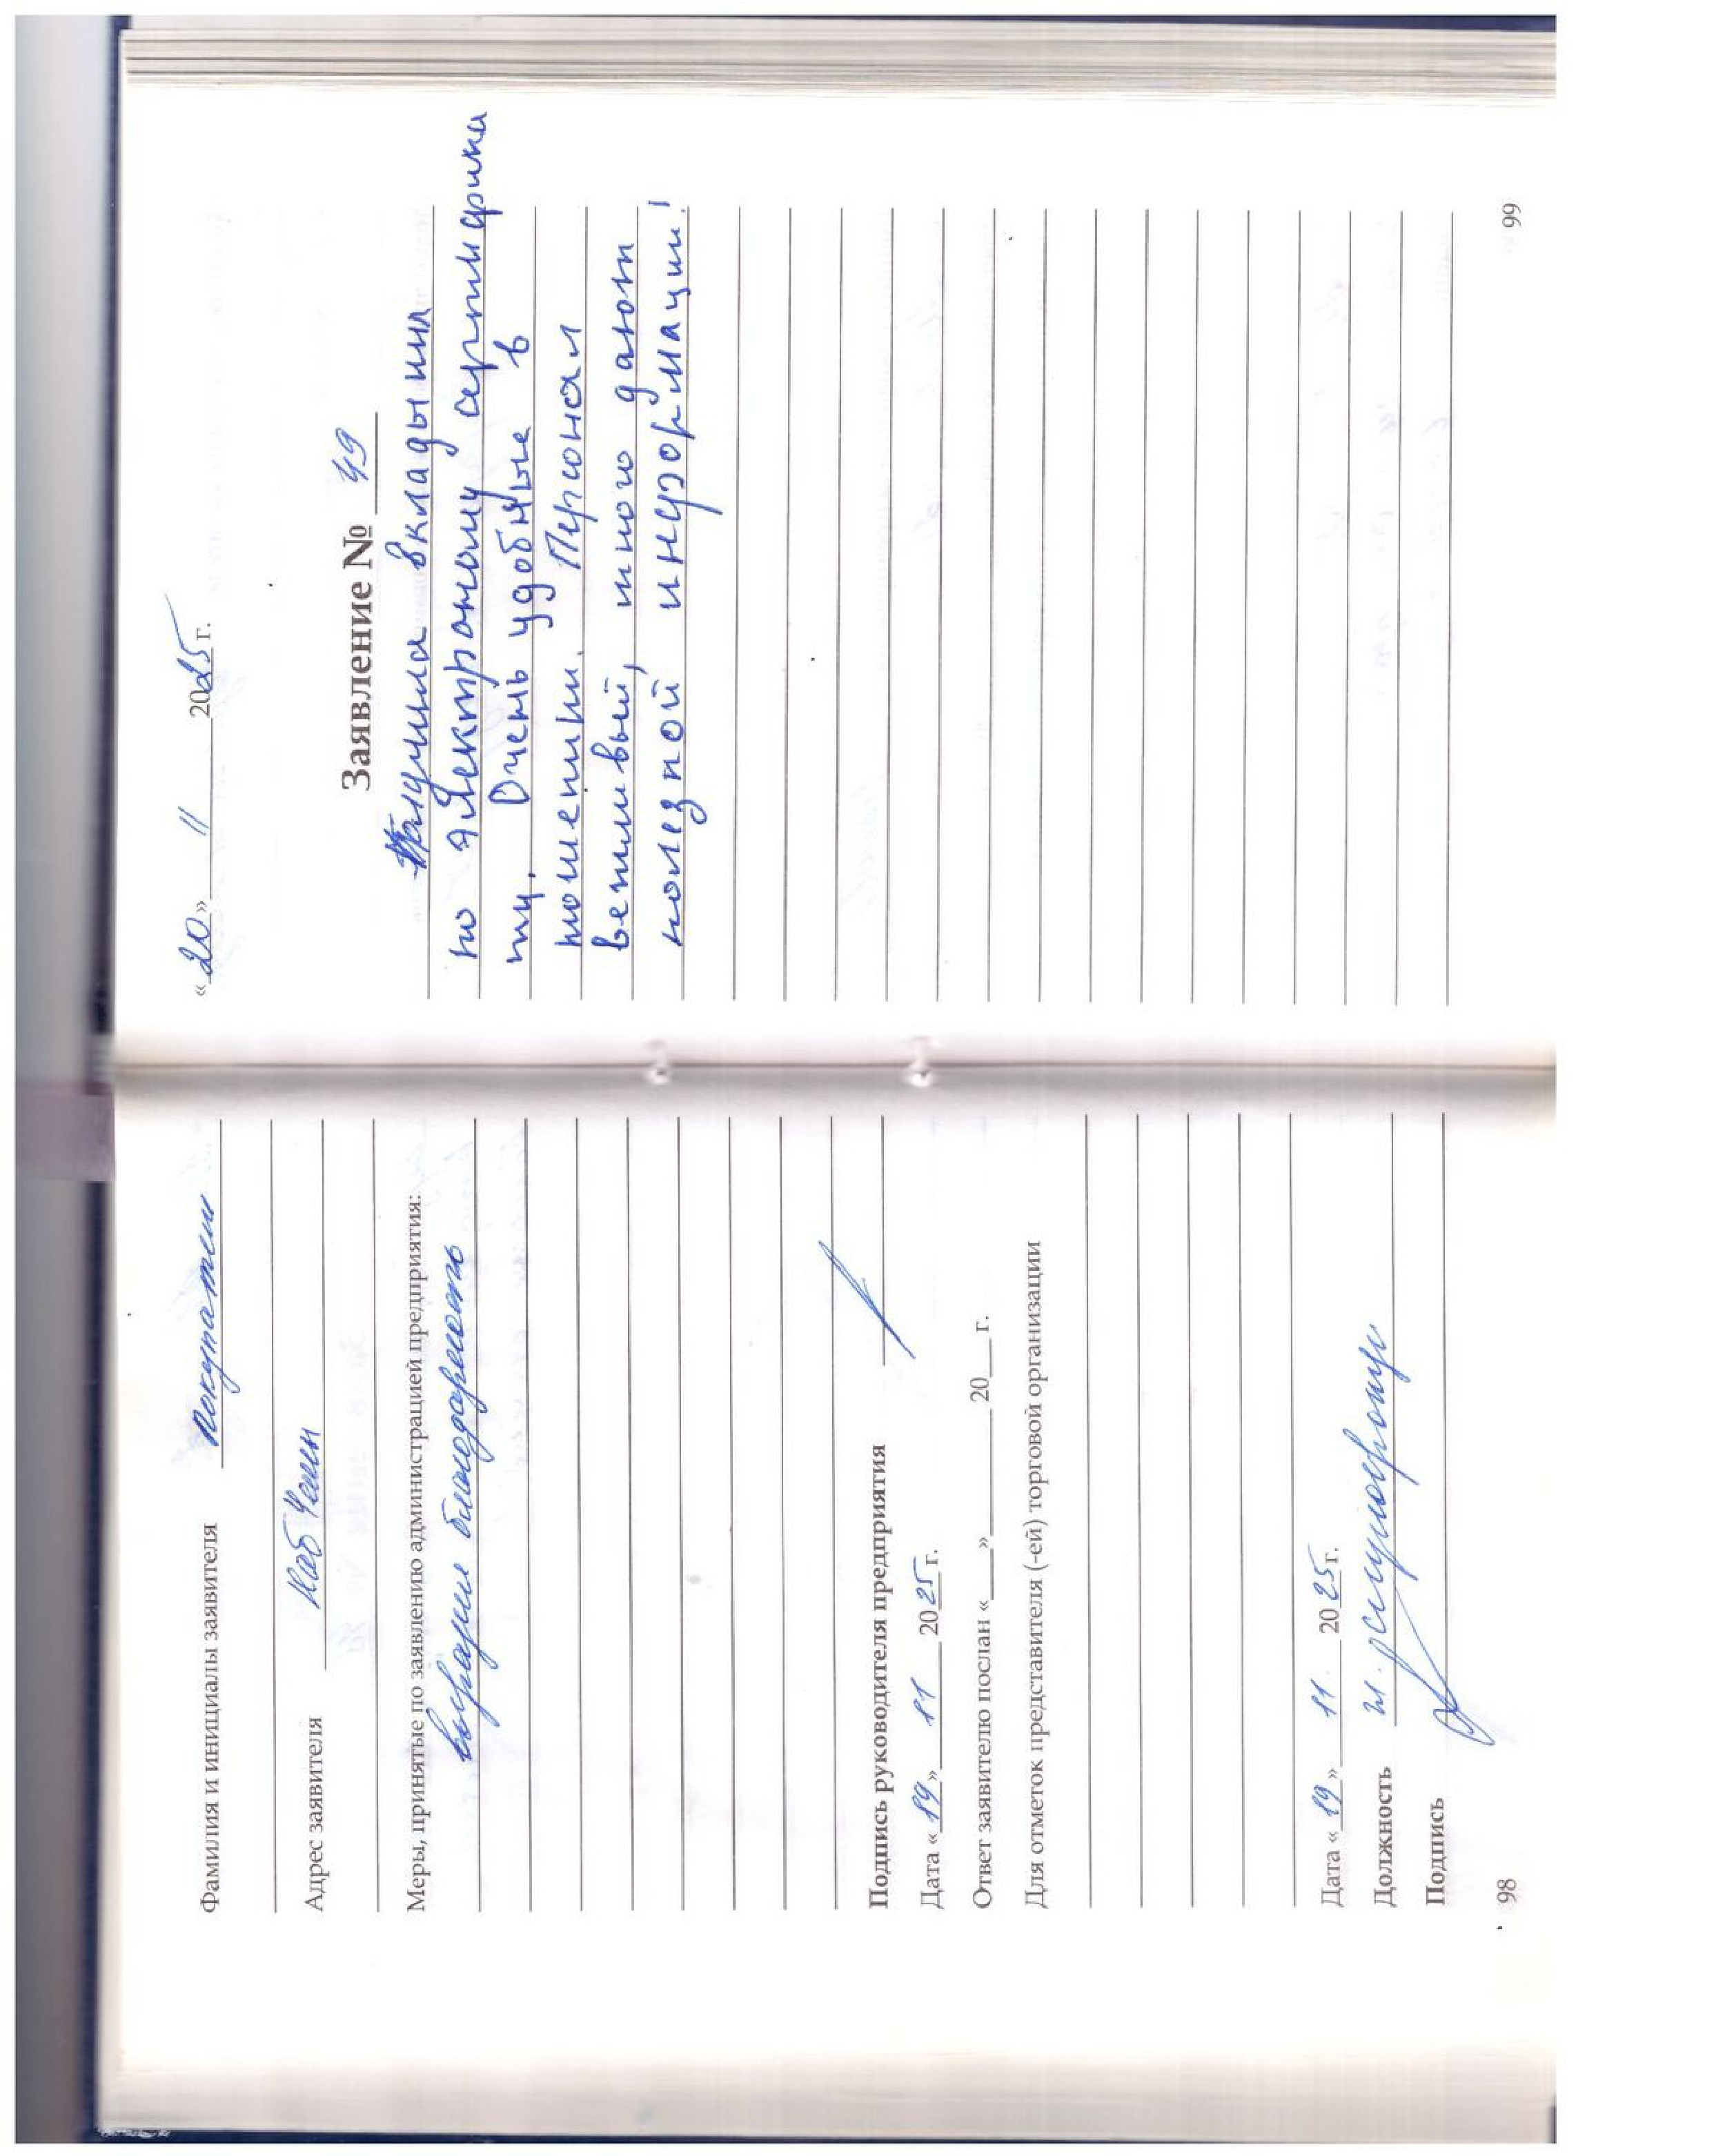 Фамилия и инициалы заявителя покупатель
Адрес заявителя Наб Челны
Меры, принятые по заявлению администрацией предприятия:
выражаем благодарность
Подпись руководителя предприятия
Дата «19» 11 2025 г.
Ответ заявителю послан «___»________ 20___ г.
Для отметок представителя (-ей) торговой организации
Дата «19» 11. 2025 г.
Должность
Подпись
98
«20» 11 2025 г.
Заявление № 49
Получила вкладыши
по электроному сертифика
ту. Очень удобные в
ношении. Персонал
вежливый, много дают
полезной информации!
99